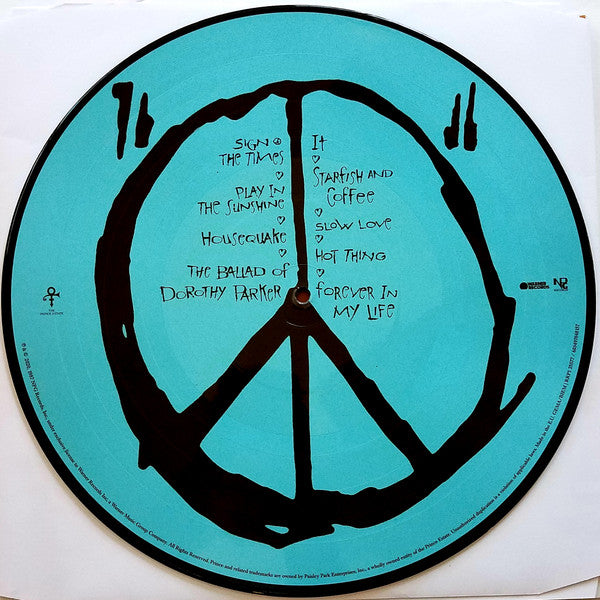 SIGN ☮
THE TIMES
♡
PLAY IN
THE SUNSHINE
♡
HOUSEQUAKE
♡
THE BALLAD OF
DOROTHY PARKER
It
♡
STARFISH AND
COFFEE
♡
SLOW LOVE
♡
HOT THING
♡
FOREVER IN
MY LIFE
THE PRINCE ESTATE
WARNER
RECORDS
NPG
℗ & © 2020, 1987 NPG Records, Inc. under exclusive license to Warner Records Inc., a Warner Music Group Company. All Rights Reserved. Prince and related trademarks are owned by Paisley Park Enterprises, Inc., a wholly owned entity of the Prince Estate. Unauthorized duplication is a violation of applicable laws. Made in the E.U.